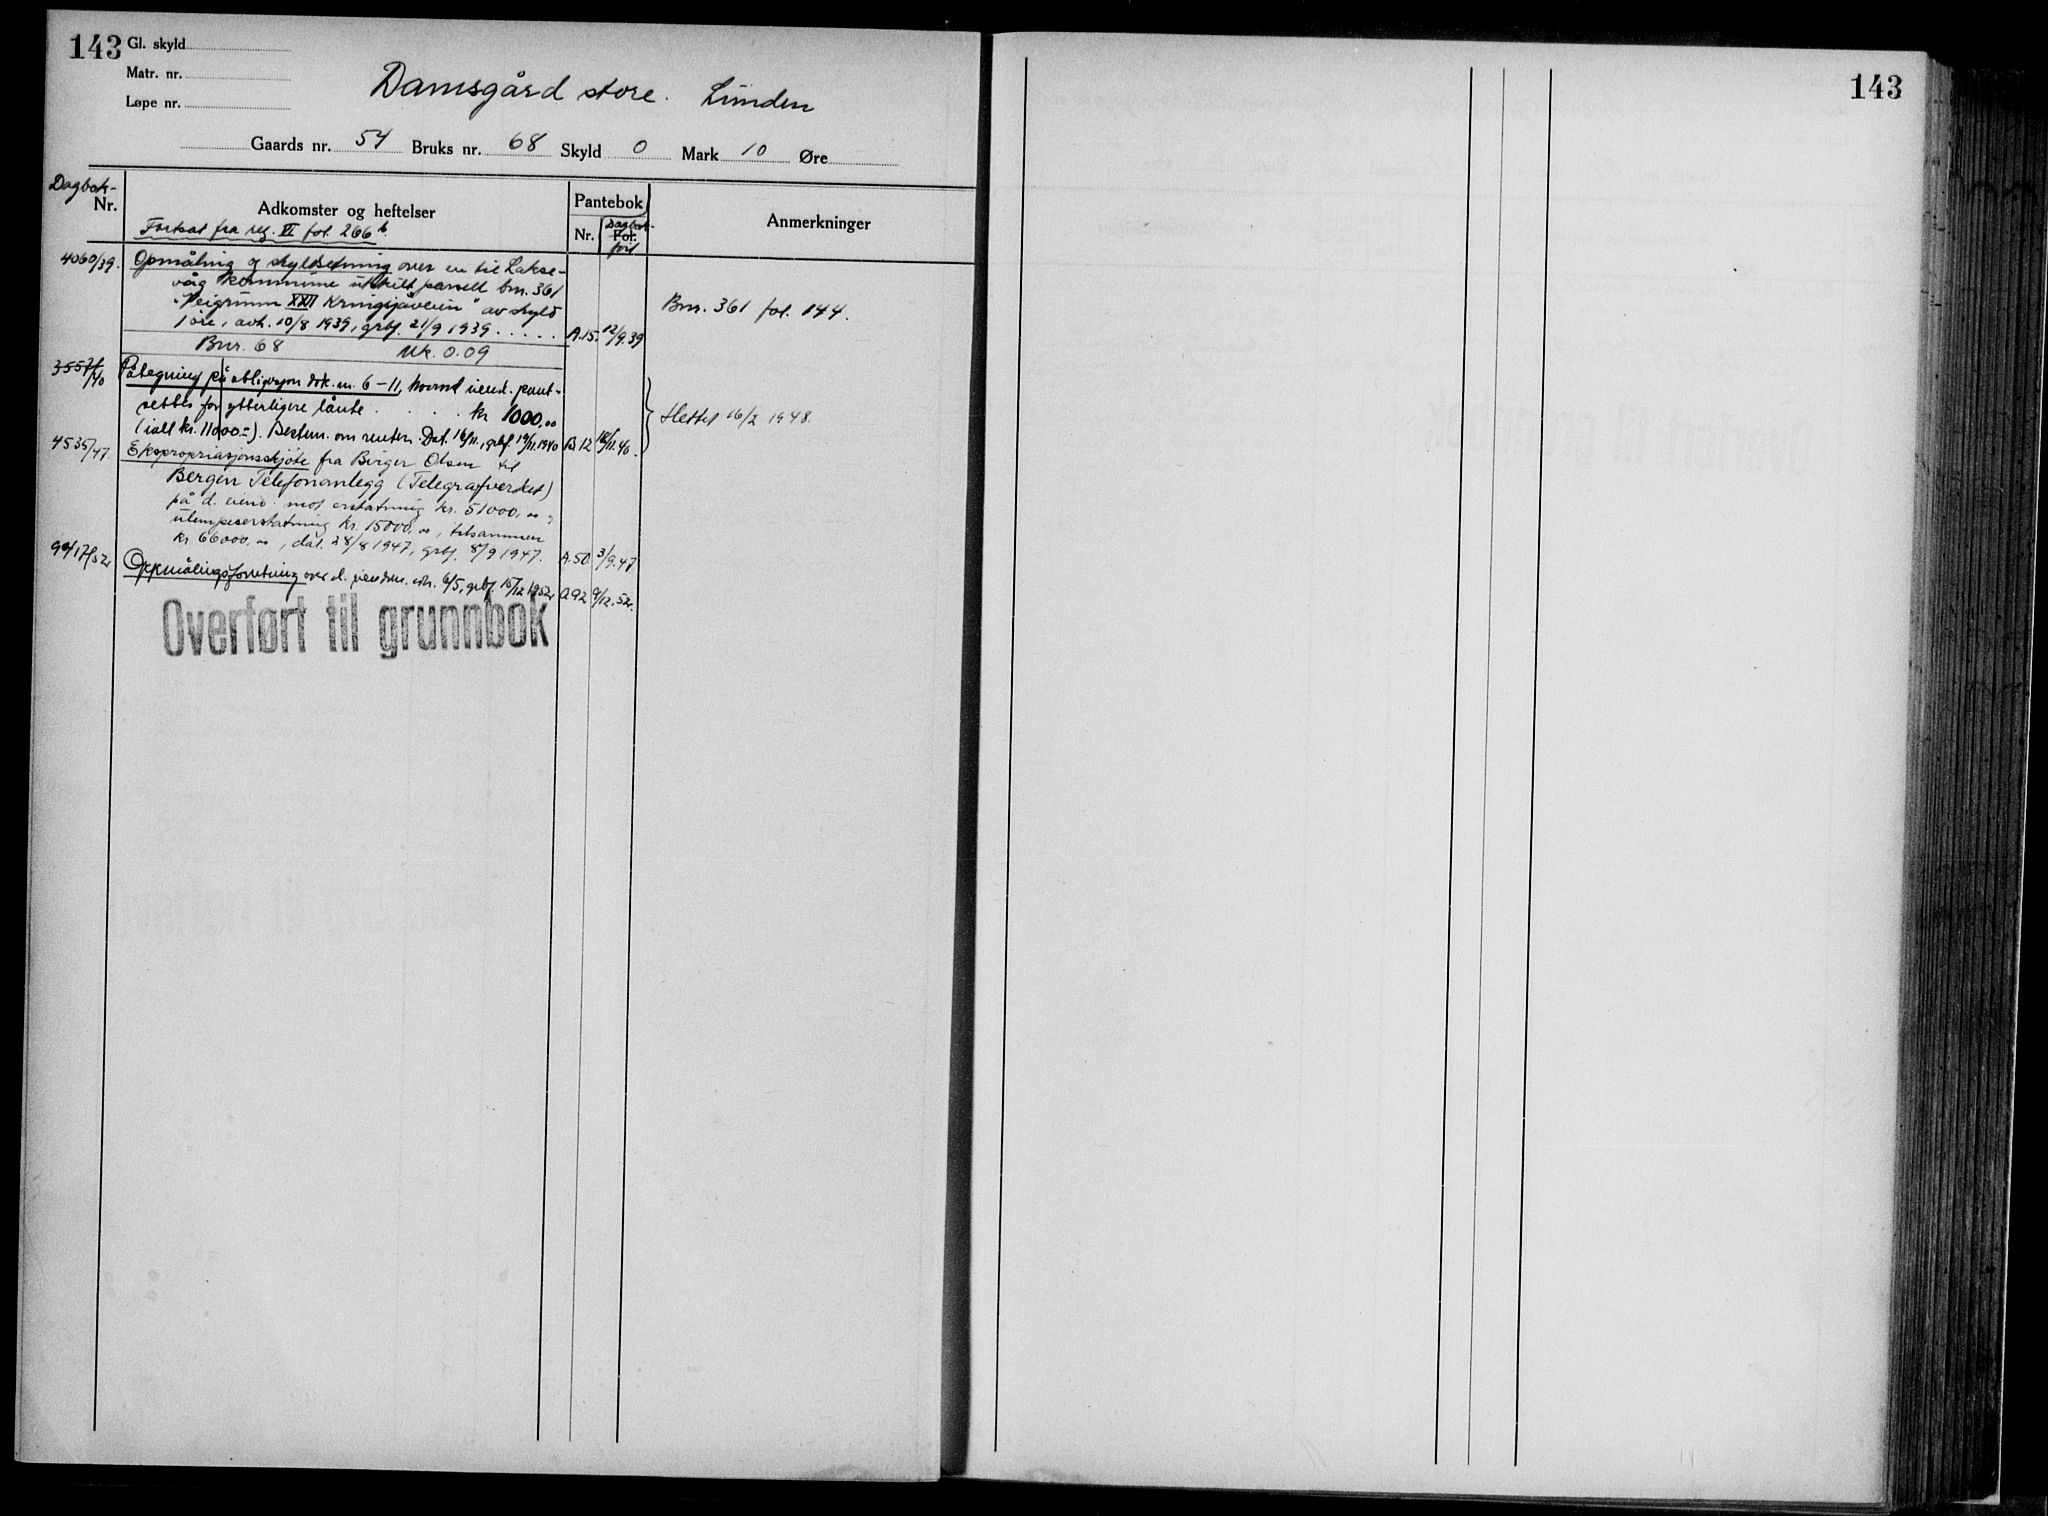 143 Gl. skyld
Matr. nr.
Løpe nr.
Damsgård store. Linden
Gaards nr. 54 Bruks nr. 68 Skyld 0 Mark 10 Øre
Dagbok-
Nr.
Adkomster og heftelser
Fortsat fra reg. VI fol. 266 b.
Pantebok
Nr. Fol.
Dagbok-
ført
Anmerkninger
4060/39. Opmåling og skyldsetning over en til Lakse-
våg kommune utskilt parsell bnr. 361
"Veigrunn XXI Kringsjåveien" av skyld
1 øre, avh. 10/8 1939, grbf. 21/9 1939 . . . . A.15. 12/9.39
Bnr. 361 fol. 144.
Bnr. 68 Mk. 0.09
3557/40 Påtegning på obligasjon dok. nr. 6-11, hvorved eiend. pant-
settes for ytterligere lånte . . . . kr 1000.00
(ialt kr. 11000.=). Bestem. om renter. Dat. 16/11., grbf. 19/11.1940 B.12 18/11.40.
Slettet 16/2 1948.
4535/47. Ekspropriasjonsskjøte fra Birger Olsen til
Bergen Telefonanlegg (Telegrafverket)
på d. eiend. mot erstatning kr. 51000,00 og
ulempeerstatning kr. 15000,00, tilsammen
kr 66000,00, dat. 28/8 1947, grbf. 8/9 1947. A.50 3/9.47
Oppmålingsforretning over d. eiendom. avh. 6/5, grbf. 15/12 1952 A.92 9/12.52.
Overført til grunnbok
143